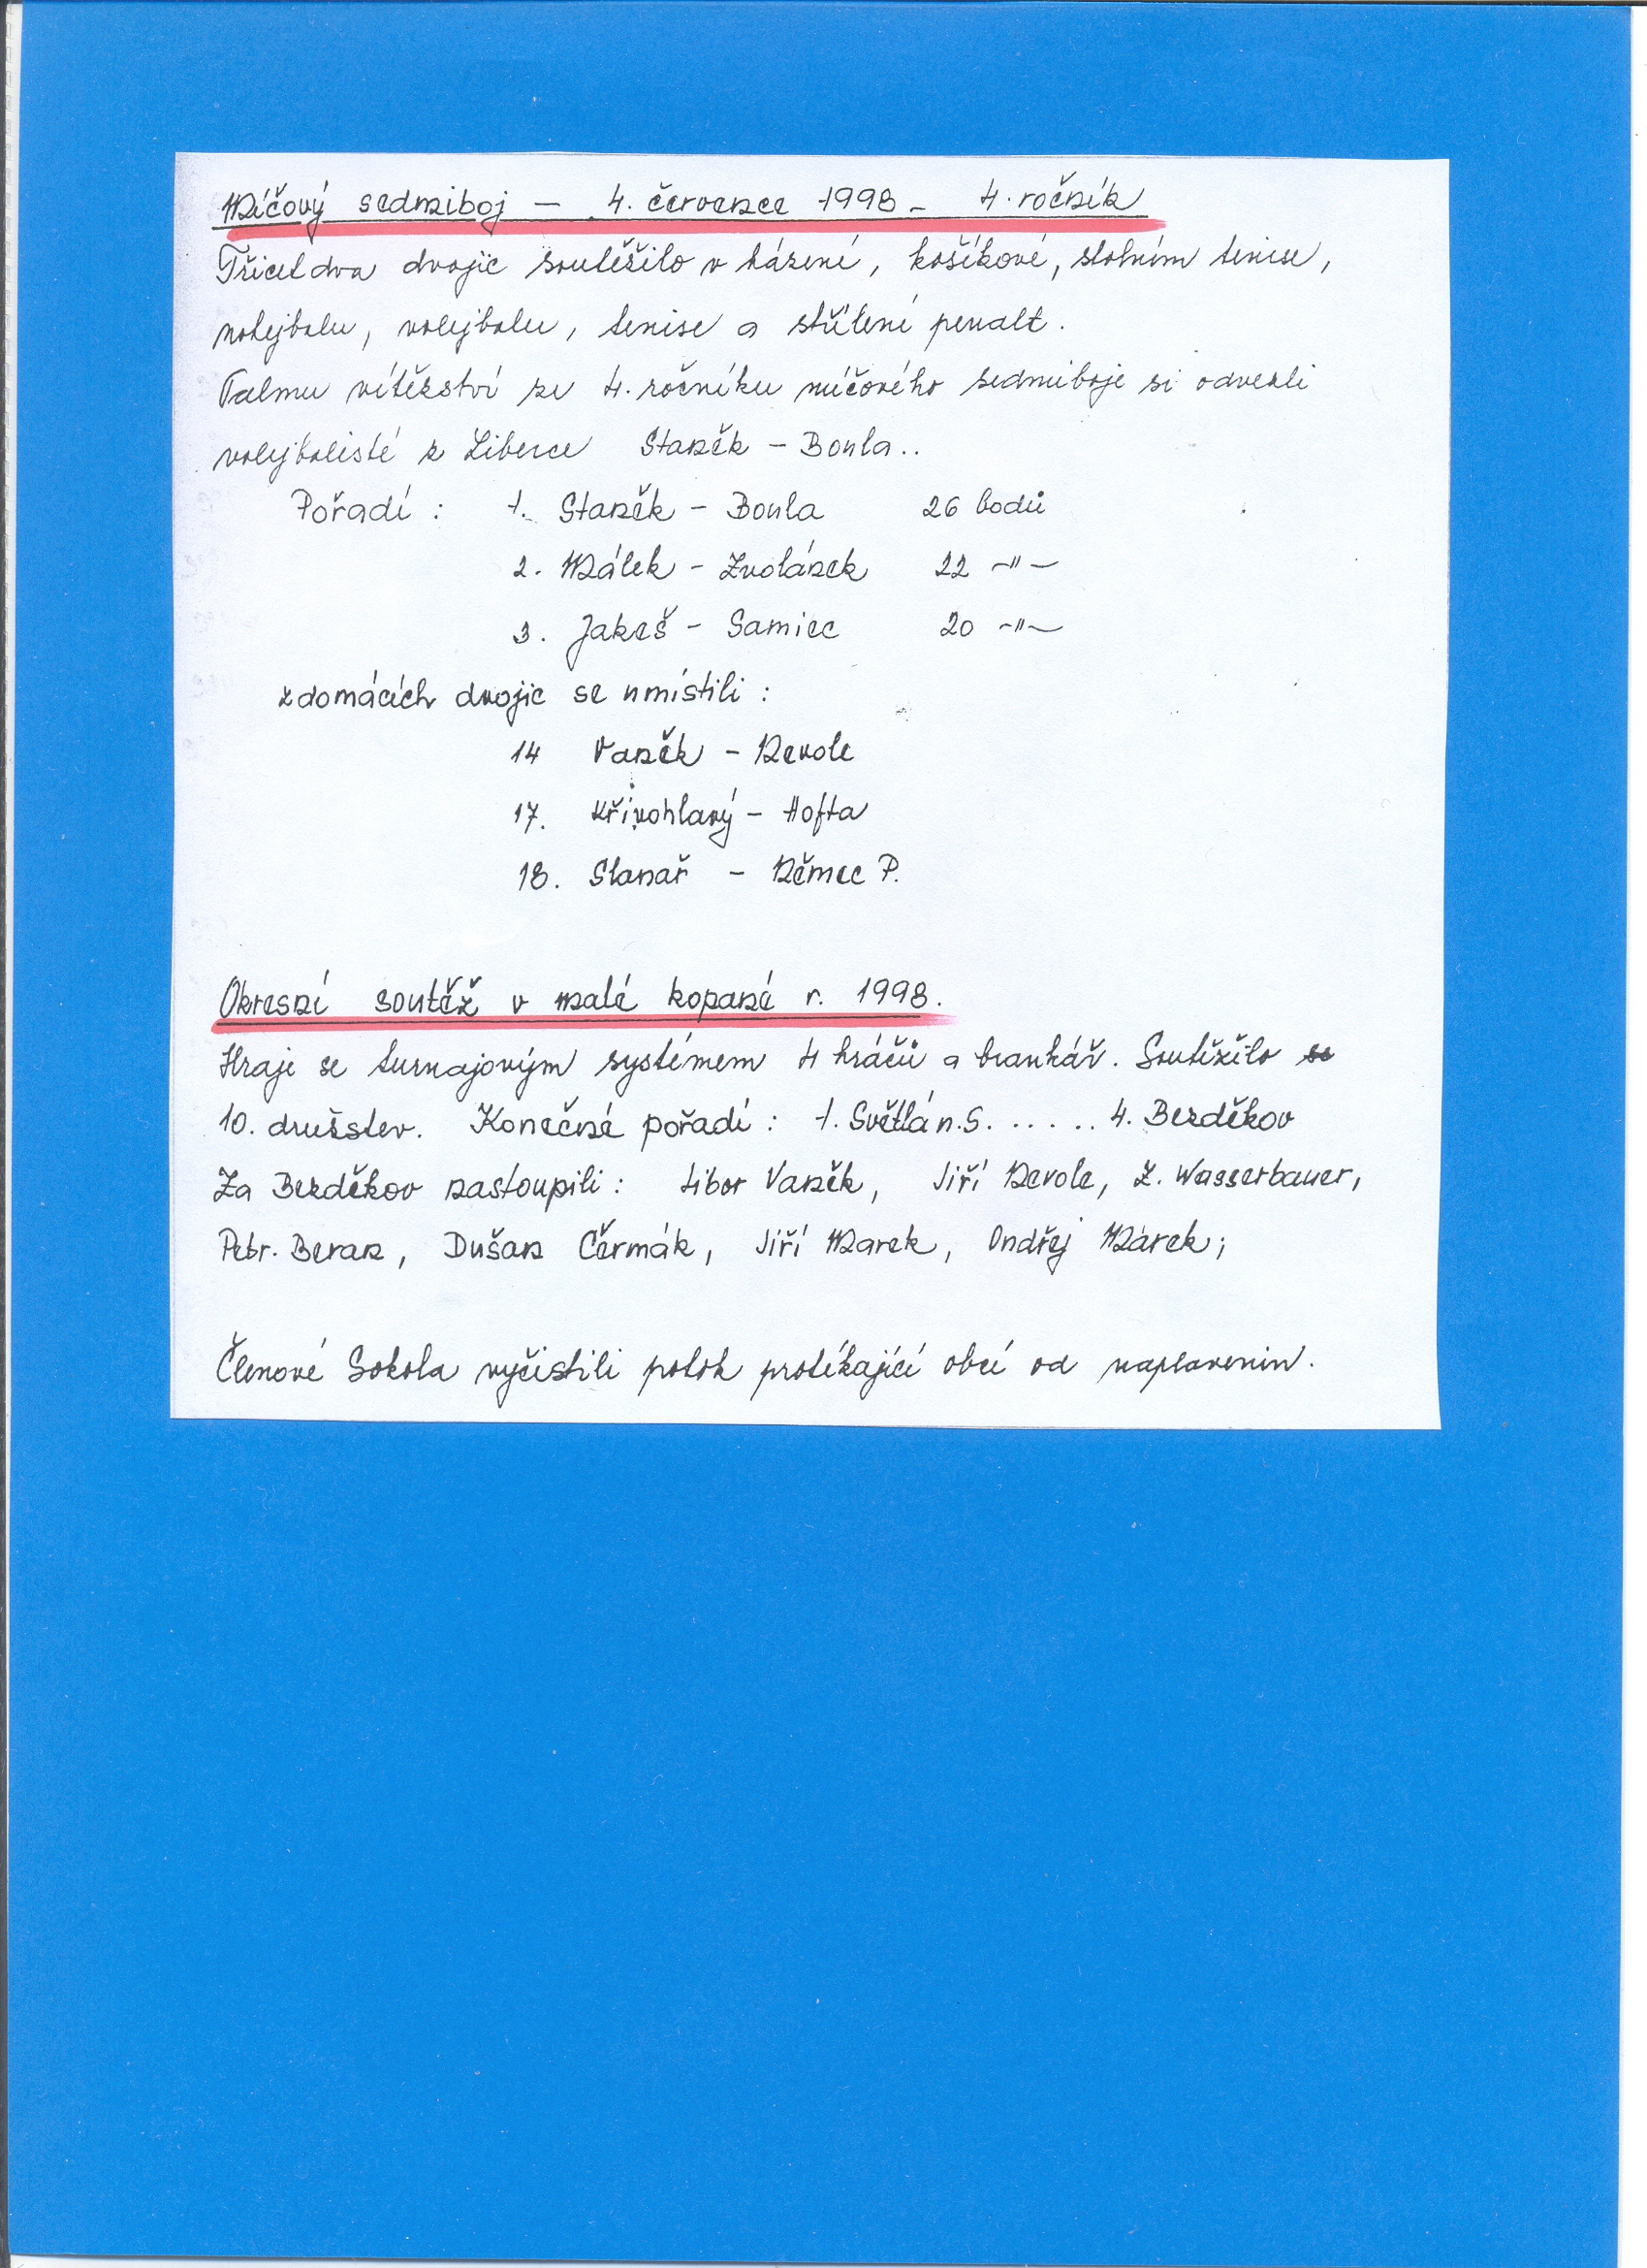 Míčový sedmiboj – 4. července 1998 – 4. ročník
Třicet dva dvojic soutěžilo v házené, košíkové, stolním tenise,
nohejbalu, volejbalu, tenise a střílení penalt.
Palmu vítězství ze 4. ročníku míčového sedmiboje si odvezli
volejbalisté z Liberce Staněk – Boula..
Pořadí : 1. Staněk – Boula 26 bodů
2. Málek – Zvolánek 22 –"–
3. Jakeš – Samiec 20 –"–
z domácích dvojic se umístili :
14 Vaněk – Nevole
17. Křivohlavý – Hofta
18. Slanař – Němec P.
Okresní soutěž v malé kopané r. 1998.
Hraje se turnajovým systémem 4 hráči a brankář. Soutěžilo se
10. družstev. Konečné pořadí : 1. Světlá n.S. . . . . . 4. Bezděkov
Za Bezděkov nastoupili : Libor Vaněk, Jiří Nevole, Z. Wasserbauer,
Petr. Beran, Dušan Čermák, Jiří Marek, Ondřej Márek;
Členové Sokola vyčistili potok protékající obcí od naplavenin.